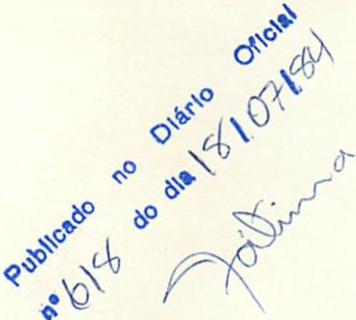 Publicado no Diário Oficial
nº 618 do dia 18/07/84
Fátima